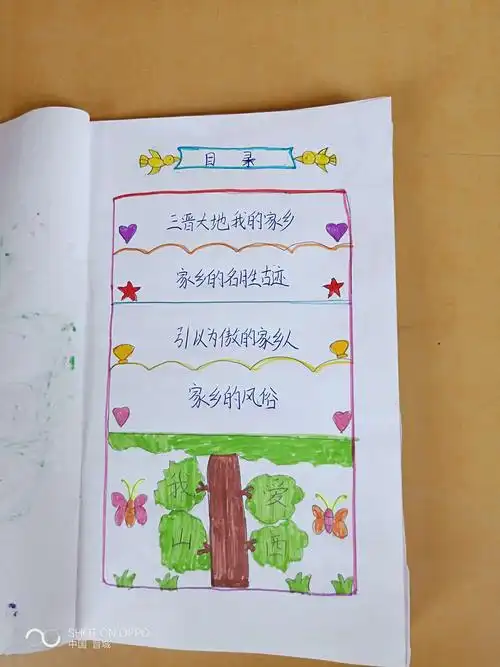 目 录
三晋大地我的家乡
家乡的名胜古迹
引以为傲的家乡人
家乡的风俗
我 爱
山 西
SHOT ON OPPO
中国 晋城